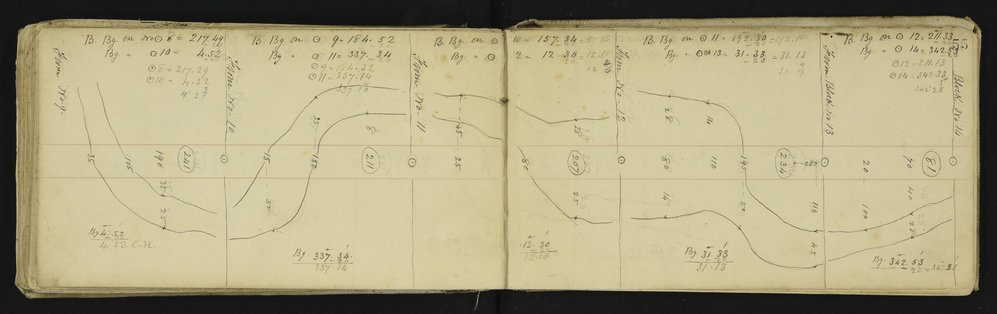 B. Bg. on No ⊙ 8 = 217.49
Bg " ⊙ 10 = 4.52
⊙ 8 = 217.29
⊙ 10 = 4.32
From No. 9.
35
105
190
35
25
241
Bg 4.52
4.32 C.R.
From No. 10
B. Bg. on ⊙ 9 = 184.52
Bg " ⊙ 11 = 337.34
⊙ 9 = 184.32
⊙ 11 = 337.14
15
35
50
150
8
211
Bg 337.34
337.14
From No. 11
B. Bg. on
10 = 157.34
Bg "
2 = 12.30 = 12.10
45
25
80
28
25
207
12.30
12.10
From No. 12
B. Bg on ⊙ 11 = 192.30 = 192.10
Bg " ⊙ 13 = 31.33 = 31.13
28
80
14
14
110
190
50
234
Bg 31.33
31.13
110
45
From Block No 13
B. Bg on ⊙ 12 = 211.33
Bg " ⊙ 14 = 342.53
⊙ 12 = 211.13
⊙ 14 = 342.33
20
100
70
40
25
81
Bg 342.53
20 = 342.33
Block No 14